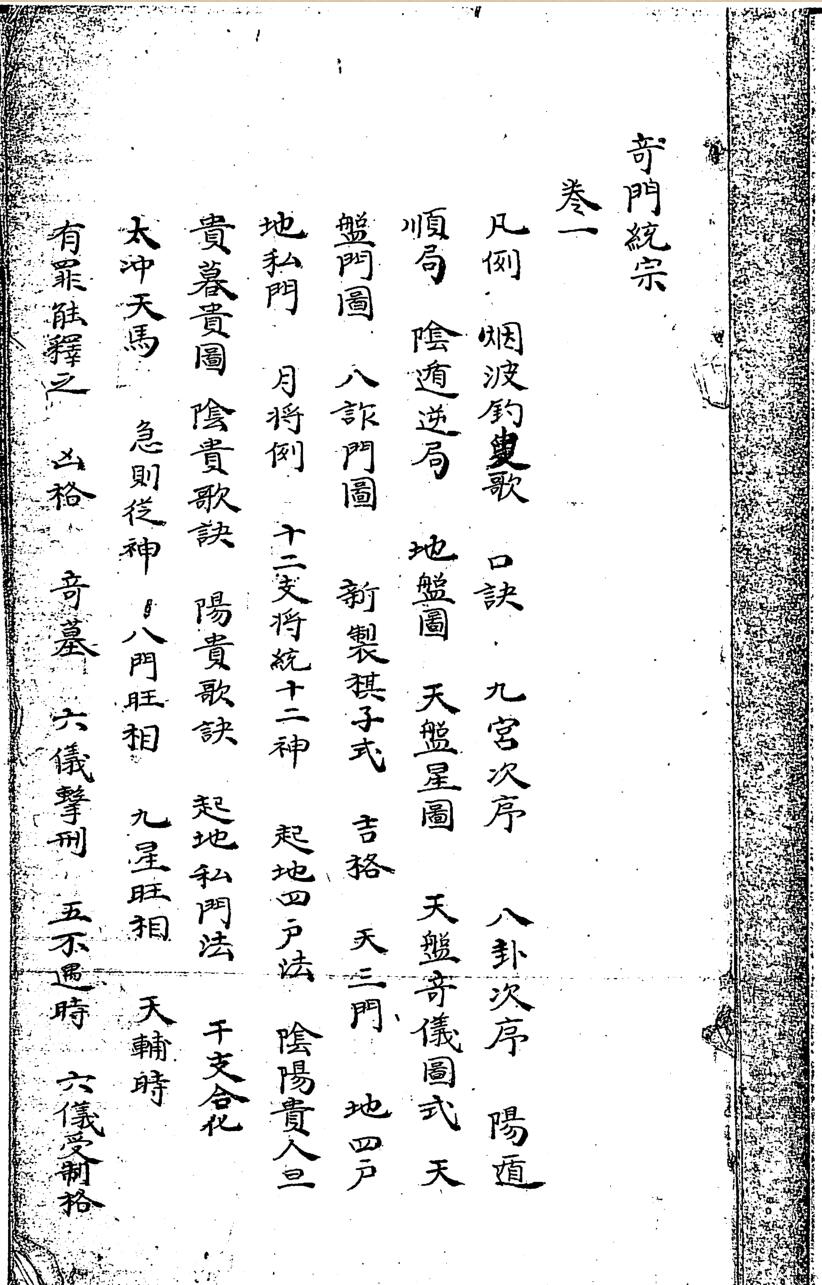 奇門統宗
卷一
凡例　烟波釣叟歌　口訣　九宮次序　八卦次序　陽遁
順局　陰遁逆局　地盤圖　天盤星圖　天盤奇儀圖式　天
盤門圖　八詐門圖　新製棋子式　吉格　天三門　地四户
地私門　月将例　十二支将統十二神　起地四户法　陰陽貴人旦
貴暮貴圖　陰貴歌訣　陽貴歌訣　起地私門法　干支合化
太冲天馬　急則從神　八門旺相　九星旺相　天輔時
有罪能釋之　凶格　奇墓　六儀擊刑　五不遇時　六儀受制格